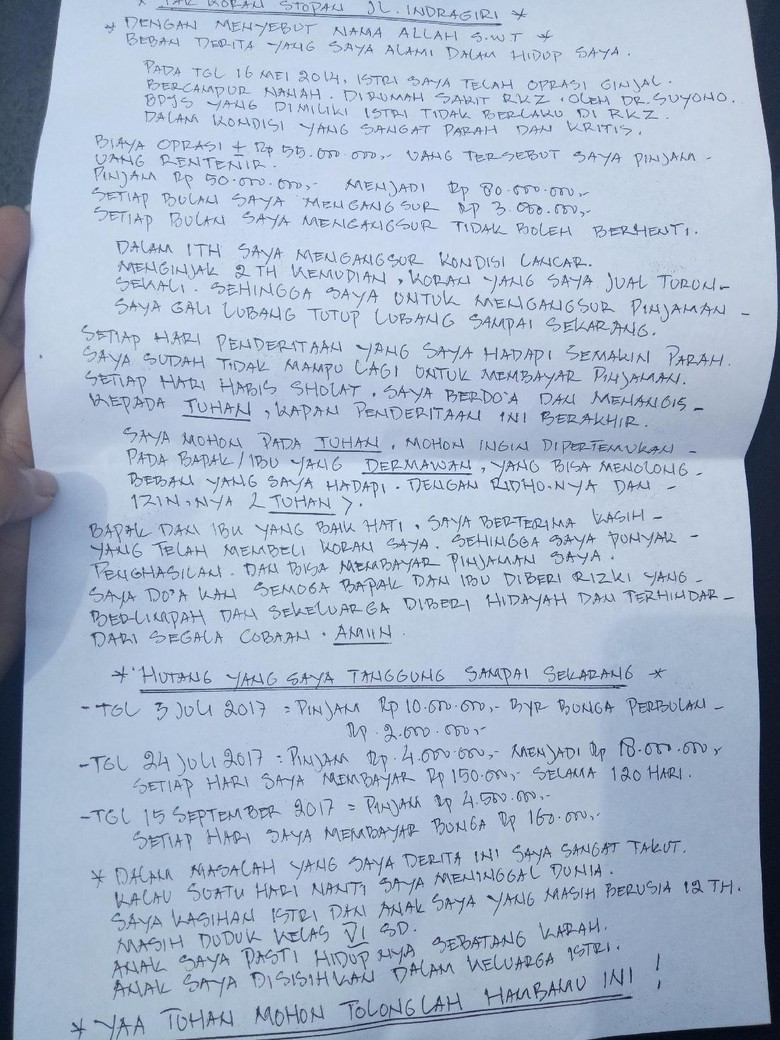 * TAK KORAN STOPAN JL. INDRAGIRI *
* DENGAN MENYEBUT NAMA ALLAH S.WT *
BEBAN DERITA YANG SAYA ALAMI DALAM HIDUP SAYA.
PADA TGL 16 MEI 2014, ISTRI SAYA TELAH OPRASI GINJAL.
BERCAMPUR NANAH. DIRUMAH SAKIT RKZ. OLEH DR. SUYONO.
BPJS YANG DIMILIKI ISTRI TIDAK BERLAKU DI RKZ.
DALAM KONDISI YANG SANGAT PARAH DAN KRITIS.
BIAYA OPRASI ± Rp 55.000.000,- UANG TERSEBUT SAYA PINJAM -
UANG RENTENIR.
PINJAM Rp 50.000.000,- MENJADI Rp 80.000.000,-
SETIAP BULAN SAYA MENGANGSUR Rp 3.000.000,-
SETIAP BULAN SAYA MENGANGSUR TIDAK BOLEH BERHENTI.
DALAM 1TH SAYA MENGANGSUR KONDISI LANCAR.
MENGINJAK 2 TH KEMUDIAN, KORAN YANG SAYA JUAL TURUN -
SEKALI. SEHINGGA SAYA UNTUK MENGANGSUR PINJAMAN -
SAYA GALI LUBANG TUTUP LUBANG SAMPAI SEKARANG.
SETIAP HARI PENDERITAAN YANG SAYA HADAPI SEMAKIN PARAH.
SAYA SUDAH TIDAK MAMPU LAGI UNTUK MEMBAYAR PINJAMAN.
SETIAP HARI HABIS SHOLAT, SAYA BERDO'A DAN MENANGIS -
KEPADA TUHAN, KAPAN PENDERITAAN INI BERAKHIR.
SAYA MOHON PADA TUHAN, MOHON INGIN DIPERTEMUKAN -
PADA BAPAK/IBU YANG DERMAWAN, YANG BISA MENOLONG -
BEBAN YANG SAYA HADAPI. DENGAN RIDHO.NYA DAN -
IZIN.NYA < TUHAN >.
BAPAK DAN IBU YANG BAIK HATI, SAYA BERTERIMA KASIH -
YANG TELAH MEMBELI KORAN SAYA. SEHINGGA SAYA PUNYAK -
PENGHASILAN. DAN BISA MEMBAYAR PINJAMAN SAYA.
SAYA DO'A KAN SEMOGA BAPAK DAN IBU DIBERI RIZKI YANG -
BERLIMPAH DAN SEKELUARGA DIBERI HIDAYAH DAN TERHINDAR -
DARI SEGALA COBAAN. AMIIN.
*' HUTANG YANG SAYA TANGGUNG SAMPAI SEKARANG *
- TGL 3 JULI 2017 = PINJAM Rp 10.000.000,- BYR BUNGA PERBULAN -
Rp. 2.000.000,-
- TGL 24 JULI 2017 = PINJAM Rp. 4.000.000,- MENJADI Rp 18.000.000,-
SETIAP HARI SAYA MEMBAYAR Rp 150.000,- SELAMA 120 HARI.
- TGL 15 SEPTEMBER 2017 = PINJAM Rp 4.500.000,-
SETIAP HARI SAYA MEMBAYAR BUNGA Rp 160.000,-
* DALAM MASALAH YANG SAYA DERITA INI SAYA SANGAT TAKUT.
KALAU SUATU HARI NANTI SAYA MENINGGAL DUNIA.
SAYA KASIHAN ISTRI DAN ANAK SAYA YANG MASIH BERUSIA 12 TH.
MASIH DUDUK KELAS VI SD.
ANAK SAYA PASTI HIDUPNYA SEBATANG KARAH.
ANAK SAYA DISISIHKAN DALAM KELUARGA ISTRI.
* YAA TUHAN MOHON TOLONGLAH HAMBAMU INI !